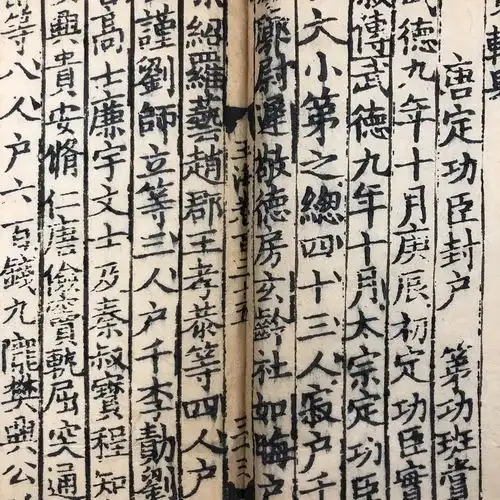 唐定功臣封户 筭功班賞
武德九年十月庚辰初定功臣實
傳武德九年十月太宗定功臣
大小第之總四十三人寂户千
尉遲敬德房玄齡社如晦户
紹羅藝趙郡王孝恭等四人户
謹劉師立等三人户千李勣劉
高士廉宇文士及秦叔寶程知
興貴安脩仁唐儉竇軌屈突通
等八人户六百錢九隴樊興公